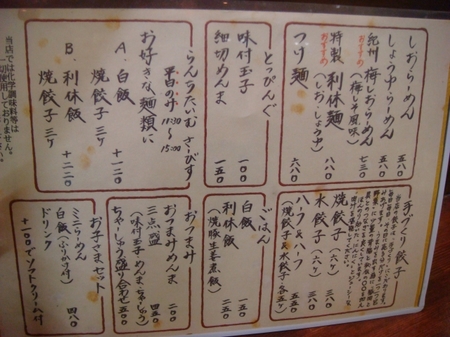 しおらーめん 五八〇
しょうゆらーめん 五八〇
紀州 梅しおらーめん 七三〇
おすすめ (梅しそ風味)
特製 利休麺 八八〇
おすすめ (しお・しょうゆ)
つけ麺 六八〇
とっぴんぐ
味付玉子 一〇〇
細切めんま 一五〇
らんちたいむ さーびす
平日のみ 11:30〜15:00
お好きな麺類に
A. 白飯
焼餃子 三ケ 十一二〇
B. 利休飯
焼餃子 三ケ 十二二〇
当店では化学調味料等は
一切使用しておりません。
手づくり餃子
焼餃子 (六ケ) 三八〇
水餃子 (六ケ) 三八〇
ハーフ&ハーフ
(焼餃子&水餃子 各五ケ)
ごはん
白飯 一五〇
利休飯 二五〇
(焼豚生姜煮飯)
おつまみ
おつまみめんま 二〇〇
三点盛 四五〇
(味付玉子 めんま ちゃーしゅう)
ちゃーしゅう盛り合わせ 五五〇
お子さまセット
ミニらーめん
白飯(ふりかけ付) 四八〇
ドリンク
十一〇〇でソフトクリーム付